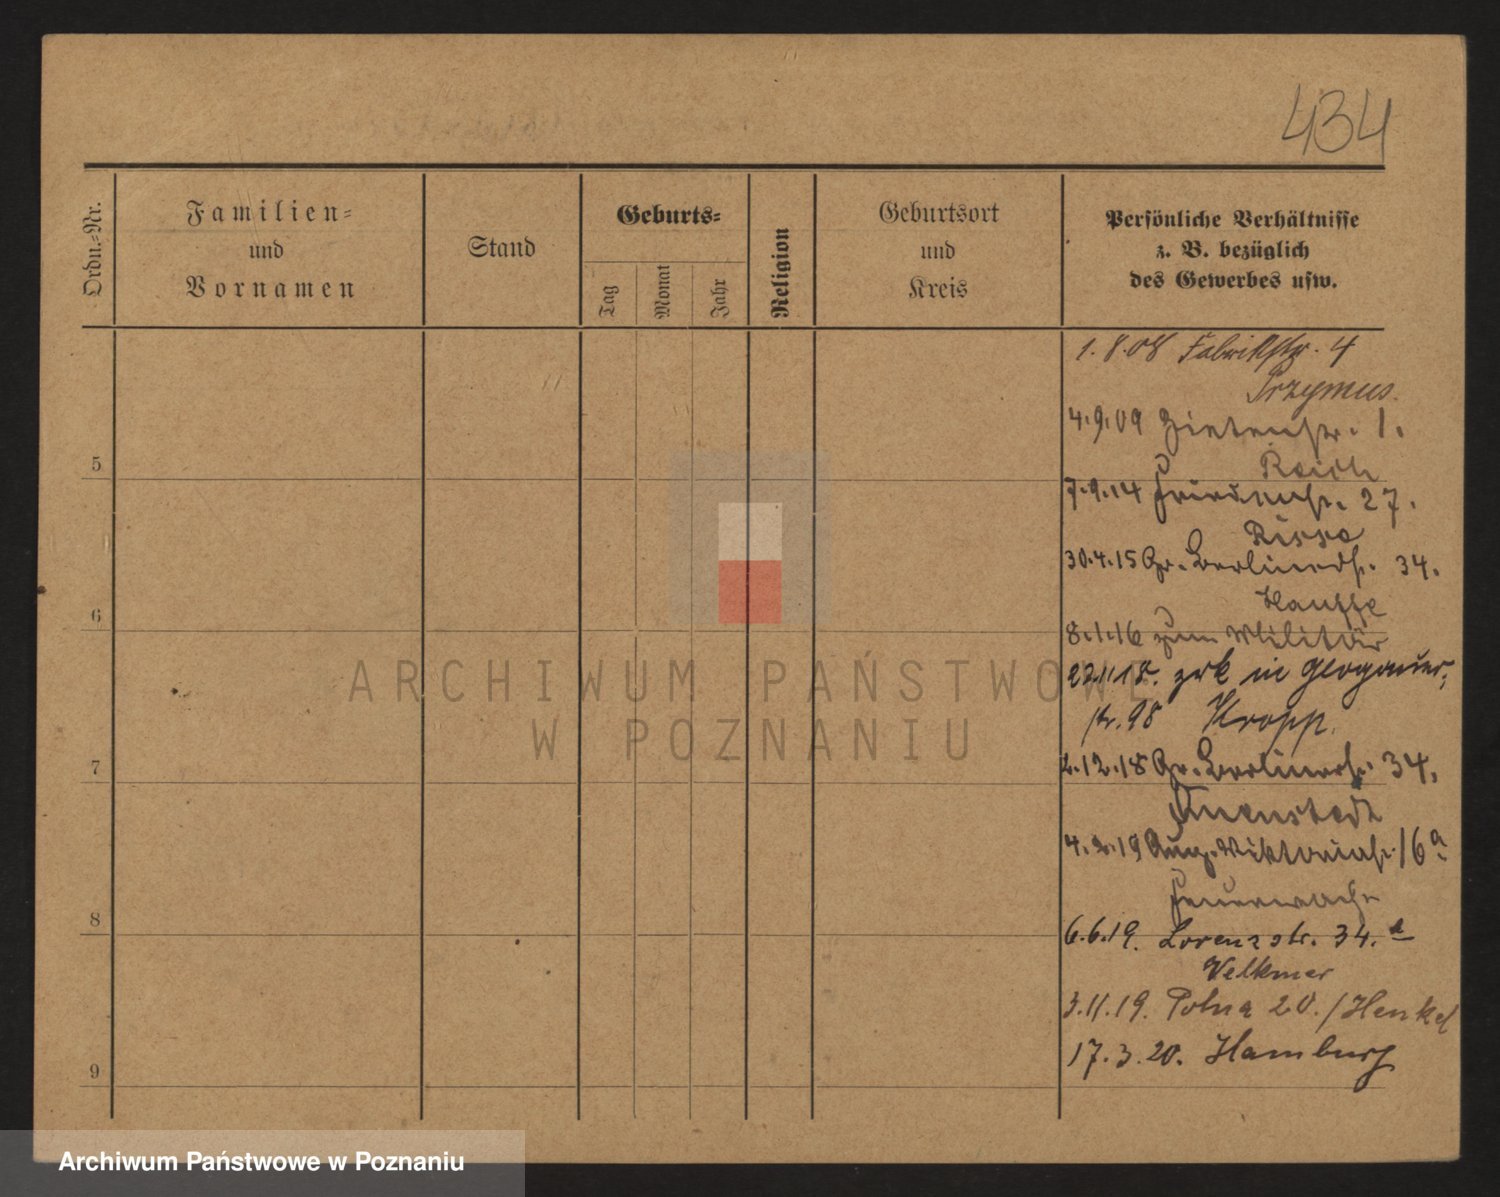 434
Ordn.-Nr.
Familien-
und
Vornamen
Stand
Geburts-
Tag
Monat
Jahr
Religion
Geburtsort
und
Kreis
Persönliche Verhältnisse
z. B. bezüglich
des Gewerbes usw.
1.8.08 Fabrikstr. 4
Przymus.
4.9.09 Zietenstr. 1.
5
Reich
7.9.14 27.
Risse
30.4.15 Gr. Berlinerstr. 34.
Hauffe
6
8.1.16 zum Militär
22.11.18. zrk in Glogauer-
str. 98 Kropp.
7
2.12.18 Gr. Berlinerstr. 34.
Quenstedt
4.2.19 Aug. Viktoriastr. 16a
Feuerwache
8
6.6.19. Lorenzstr. 34.a
Velkmer
3.11.19. Polna 20. / Henkel
17.3.20. Hamburg
9
ARCHIWUM PAŃSTWOWE
W POZNANIU
Archiwum Państwowe w Poznaniu